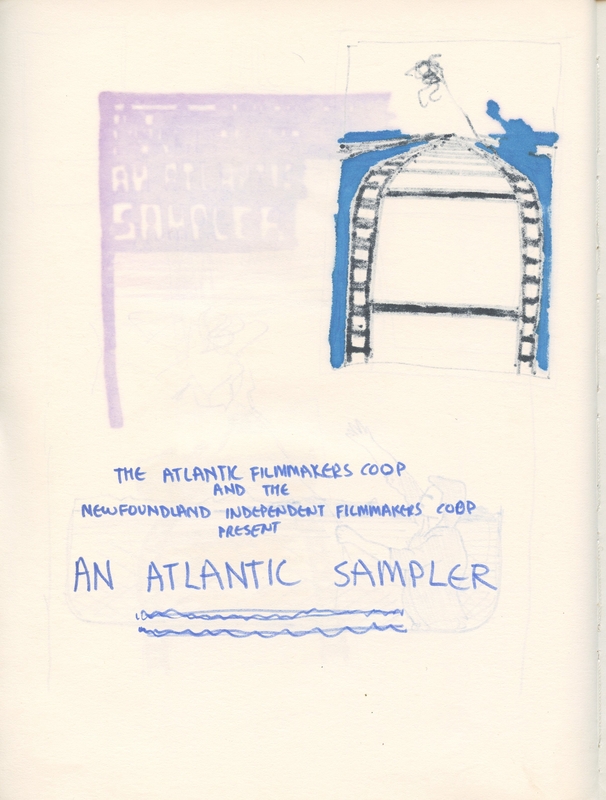 AN ATLANTIC
SAMPLER
THE ATLANTIC FILMMAKERS COOP
AND THE
NEWFOUNDLAND INDEPENDENT FILMMAKERS COOP
PRESENT
AN ATLANTIC SAMPLER